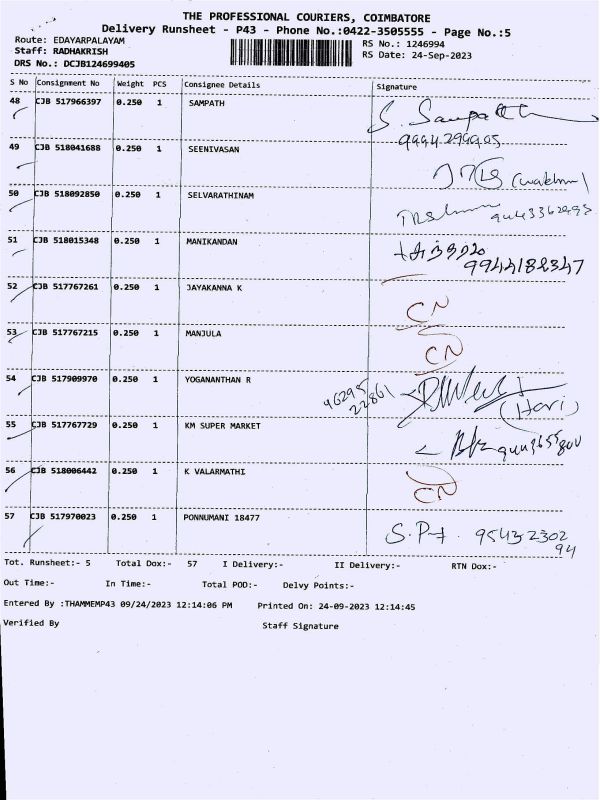 THE PROFESSIONAL COURIERS, COIMBATORE
Delivery Runsheet - P43 - Phone No.:0422-3505555 - Page No.:5
Route: EDAYARPALAYAM
RS No.: 1246994
Staff: RADHAKRISH
RS Date: 24-Sep-2023
DRS No.: DCJB124699405
S No Consignment No Weight PCS Consignee Details Signature
48 CJB 517966397 0.250 1 SAMPATH S. Sampath
9994299905
49 CJB 518041688 0.250 1 SEENIVASAN
50 CJB 518092850 0.250 1 SELVARATHINAM
51 CJB 518015348 0.250 1 MANIKANDAN
9944182347
52 CJB 517767261 0.250 1 JAYAKANNA K
CN
53 CJB 517767215 0.250 1 MANJULA
CN
54 CJB 517909970 0.250 1 YOGANANTHAN R 96295
22861
(Hari)
55 CJB 517767729 0.250 1 KM SUPER MARKET
56 CJB 518006442 0.250 1 K VALARMATHI
CN
57 CJB 517970023 0.250 1 PONNUMANI 18477
95432302
94
Tot. Runsheet:- 5 Total Dox:- 57 I Delivery:- II Delivery:- RTN Dox:-
Out Time:- In Time:- Total POD:- Delvy Points:-
Entered By :THAMMEMP43 09/24/2023 12:14:06 PM Printed On: 24-09-2023 12:14:45
Verified By Staff Signature